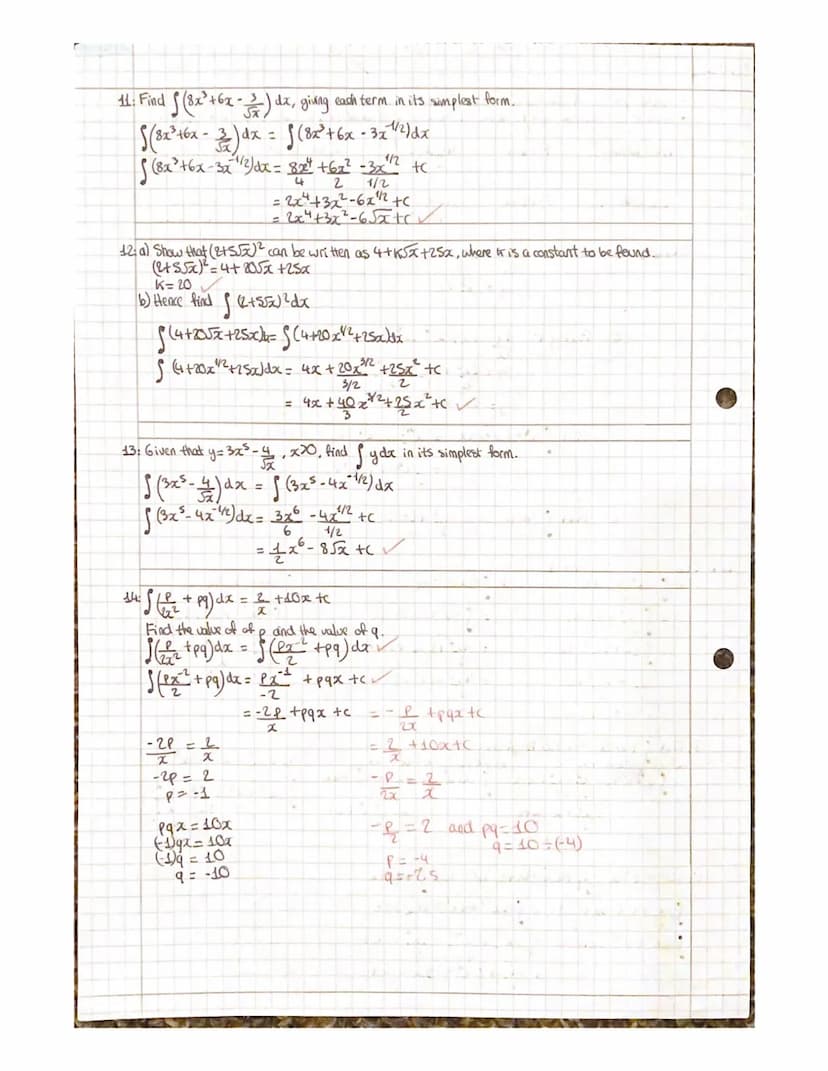 11: Find ∫(8x³+6x - 3/√x) dx, giving each term in its simplest form.
∫(8x³+6x - 3/√x)dx = ∫(8x³+6x - 3x^-1/2)dx
∫(8x³+6x-3x^-1/2)dx = 8x⁴/4 + 6x²/2 - 3x^1/2/1/2 + c
= 2x⁴+3x²-6x^1/2+c
= 2x⁴+3x²-6√x+c ✓
12: a) Show that (2+5√x)² can be written as 4+k√x+25x, where k is a constant to be found.
(2+5√x)² = 4+20√x+25x
K=20 ✓
b) Hence find ∫(2+5√x)²dx
∫(4+20√x+25x)dx = ∫(4+20x^1/2+25x)dx
∫(4+20x^1/2+25x)dx = 4x + 20x^3/2/3/2 + 25x²/2 + c
= 4x + 40/3 x^3/2 + 25/2 x² + c ✓
13: Given that y=3x⁵-4/√x, x>0, find ∫ydx in its simplest form.
∫(3x⁵-4/√x)dx = ∫(3x⁵-4x^-1/2)dx
∫(3x⁵-4x^-1/2)dx = 3x⁶/6 - 4x^1/2/1/2 + c
= 1/2 x⁶ - 8√x + c ✓
14: ∫(p/2x² + pq)dx = 2/x + 10x + c
Find the value of of p and the value of q.
∫(p/2x² + pq)dx = ∫(px^-2/2 + pq)dx ✓
∫(px^-2/2 + pq)dx = px^-1/-2 + pqx + c ✓
= -2p/x + pqx + c = -p/2x + pqx + c
-2p/x = 2/x = 2/x + 10x + c
-2p = 2 -p/2x = 2/x
p = -1
pqx = 10x -p/2 = 2 and pq=10
(-1)qx = 10x q = 10 ÷ (-4)
(-1)q = 10 p = -4
q = -10 q = -2.5